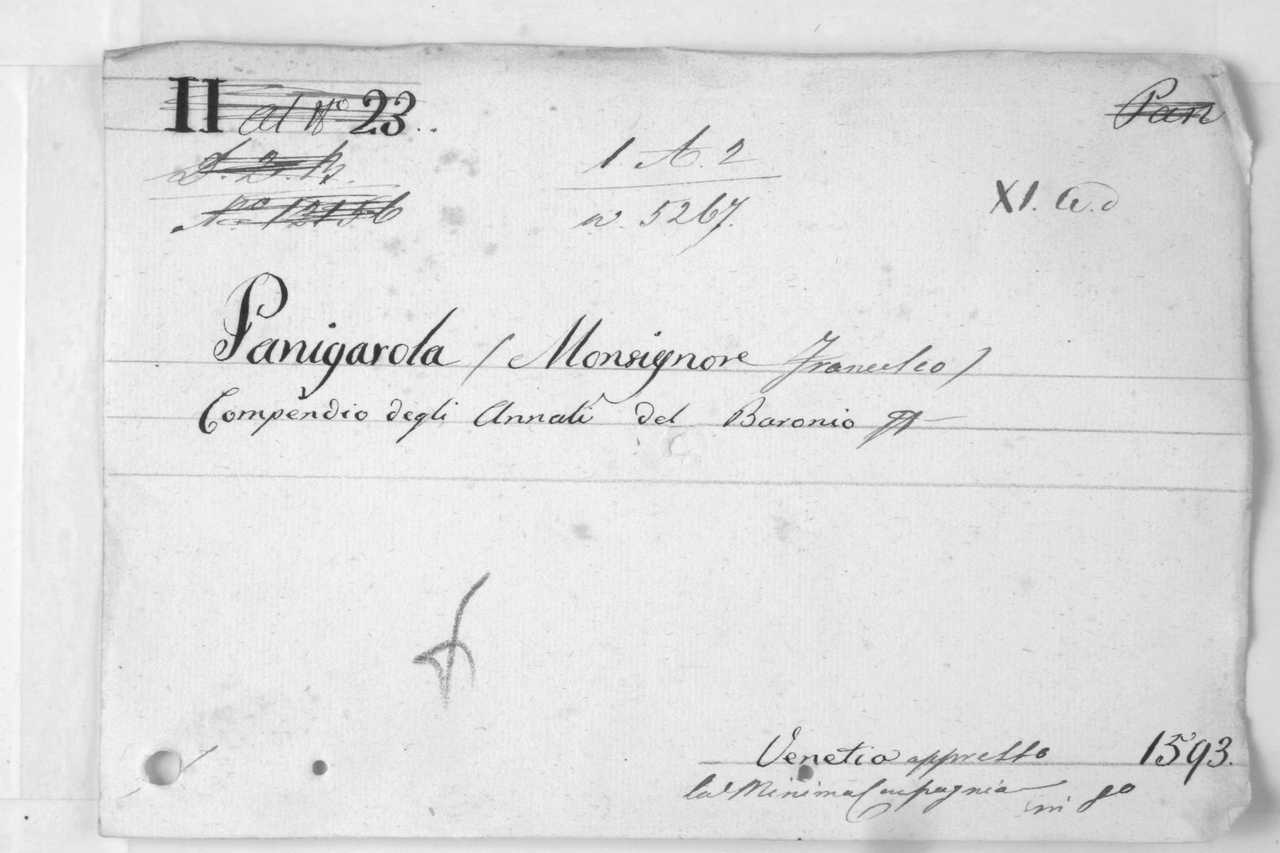 II al No 23..
Pan
D. 2. B.
1 A. 2
No 12156
a. 5267.
XI. a. d
Panigarola (Monsignore Francesco)
Compendio degli Annali del Baronio
Venetia appresso 1593.
la Minima Compagnia in 8o